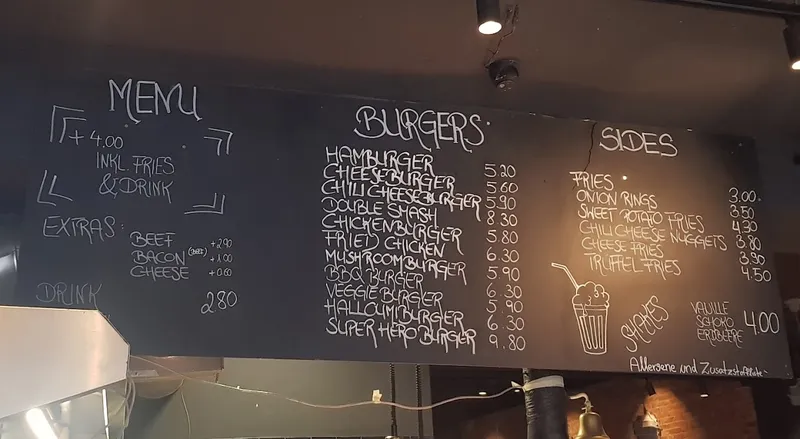 MENU
+ 4.00
INKL. FRIES
& DRINK
EXTRAS:
BEEF +2.90
BACON (BEEF) +1.00
CHEESE +0.60
DRINK 2.80
BURGERS
HAMBURGER 5.20
CHEESEBURGER 5.60
CHILI CHEESEBURGER 5.90
DOUBLE SMASH 8.30
CHICKENBURGER 5.80
FRIED CHICKEN 6.30
MUSHROOMBURGER 5.90
BBQ BURGER 6.30
VEGGIE BURGER 5.90
HALLOUMI BURGER 6.30
SUPER HERO BURGER 9.80
SIDES
FRIES 3.00
ONION RINGS 3.50
SWEET POTATO FRIES 4.30
CHILI CHEESE NUGGETS 3.80
CHEESE FRIES 3.90
TRUFFEL FRIES 4.50
SHAKES
VANILLE
SCHOKO 4.00
ERDBEERE
Allergene und